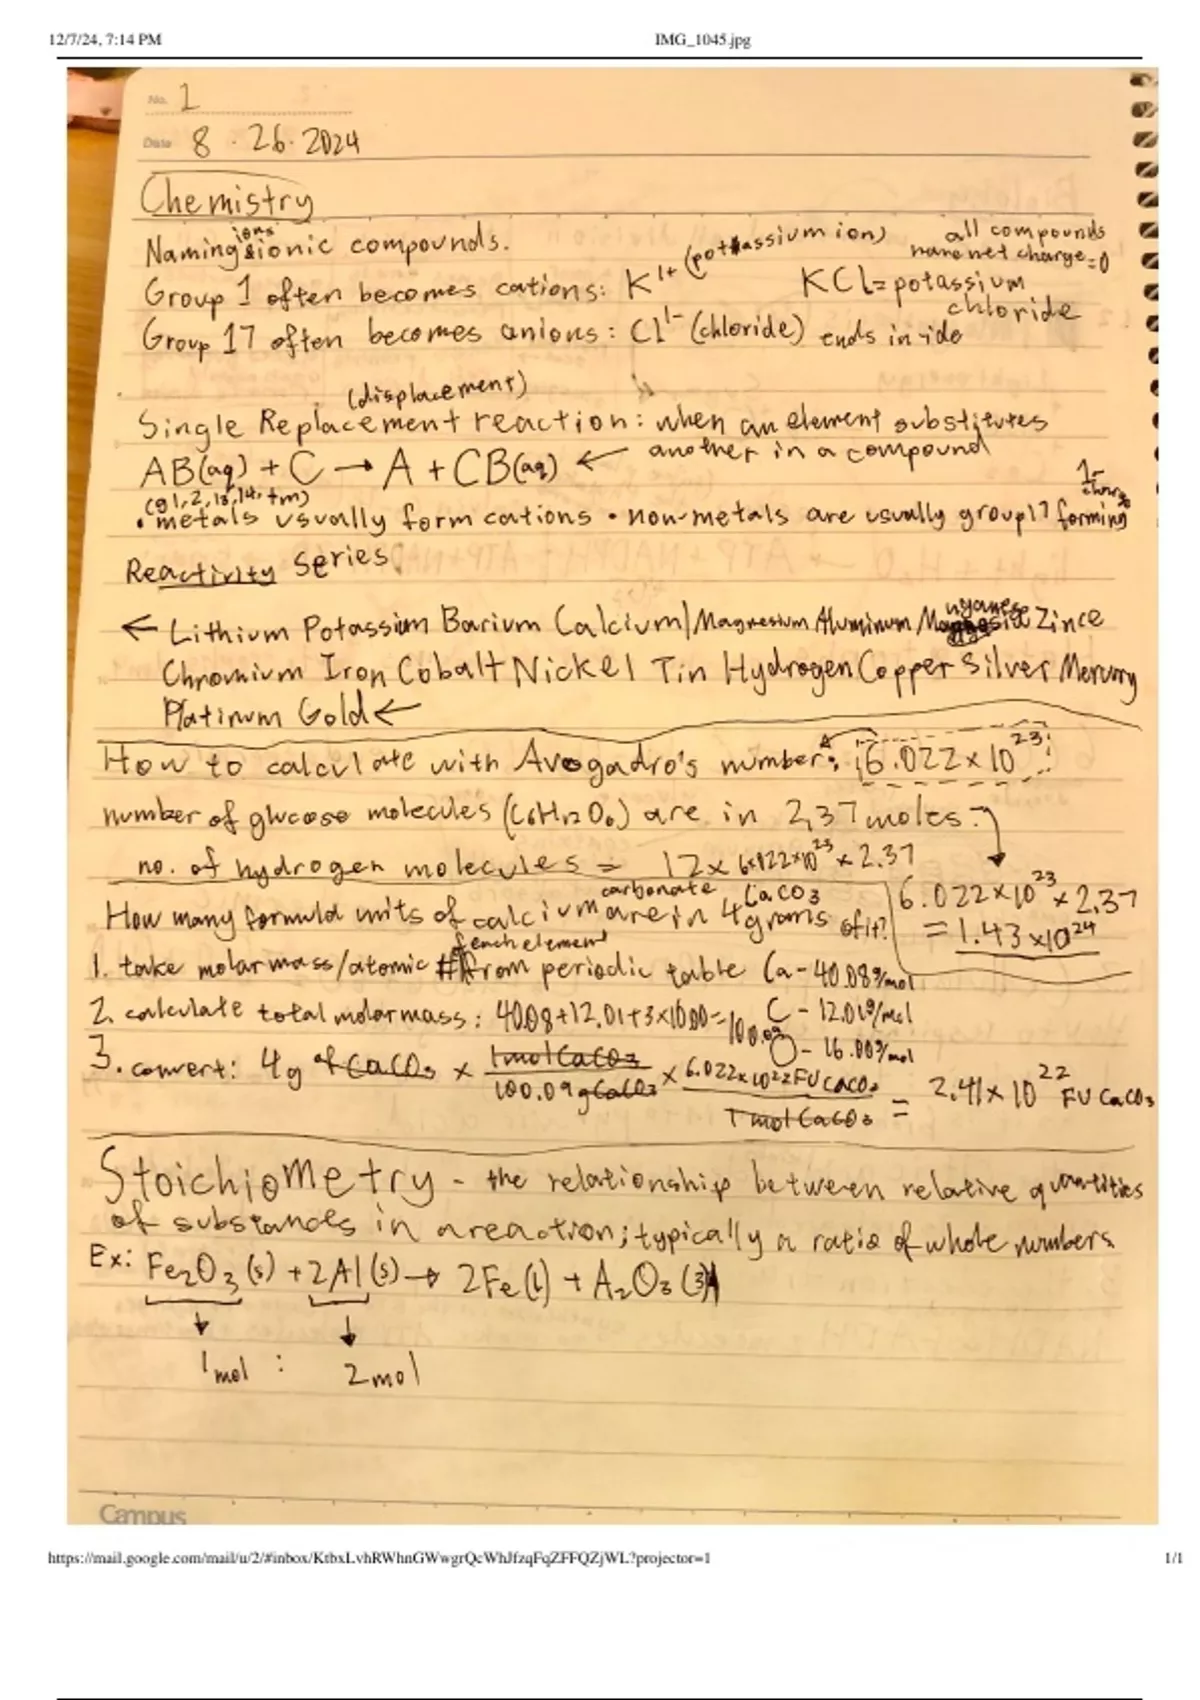 12/7/24, 7:14 PM IMG_1045.jpg
No. 1
Date 8 . 26. 2024
Chemistry
Naming ions & ionic compounds.
all compounds have net charge = 0
Group 1 often becomes cations: K¹⁺ (potassium ion) KCl = potassium chloride
Group 17 often becomes anions: Cl¹⁻ (chloride) ends in -ide
(displacement)
Single Replacement reaction: when an element substitutes
AB(aq) + C → A + CB(aq) ← another in a compound
(g 1, 2, 13, 14, tm)
• metals usually form cations • non-metals are usually group 17 forming 1- charge
Reactivity Series.
← Lithium Potassium Barium Calcium/Magnesium Aluminum Manganese Zince
Chromium Iron Cobalt Nickel Tin Hydrogen Copper Silver Mercury
Platinum Gold ←
How to calculate with Avogadro's number: 6.022 x 10²³
number of glucose molecules (C6H12O6) are in 2,37 moles:
no. of hydrogen molecules = 12 x 6.022x10²³ x 2.37
6.022x10²³ x 2.37
= 1.43 x10²⁴
How many formula units of calcium carbonate CaCO3 are in 4 grams of it?
1. take molar mass/atomic # of each element from periodic table Ca - 40.08g/mol
2. calculate total molar mass: 40.08+12.01+3x16.00=100.09 C - 12.01g/mol
O - 16.00g/mol
3. convert: 4g of CaCO3 x 1mol CaCO3 / 100.09 g CaCO3 x 6.022x10²² FU CaCO3 / 1 mol CaCO3 = 2.41 x 10²² FU CaCO3
Stoichiometry - the relationship between relative quantities
of substances in a reaction; typically a ratio of whole numbers.
Ex: Fe2O3 (s) + 2Al (s) → 2Fe (l) + A2O3 (s)
1 mol : 2 mol
Campus
https://mail.google.com/mail/u/2/#inbox/KtbxLvhRWhnGWwgrQcWhJfzqFqZFFQZjWL?projector=1 1/1